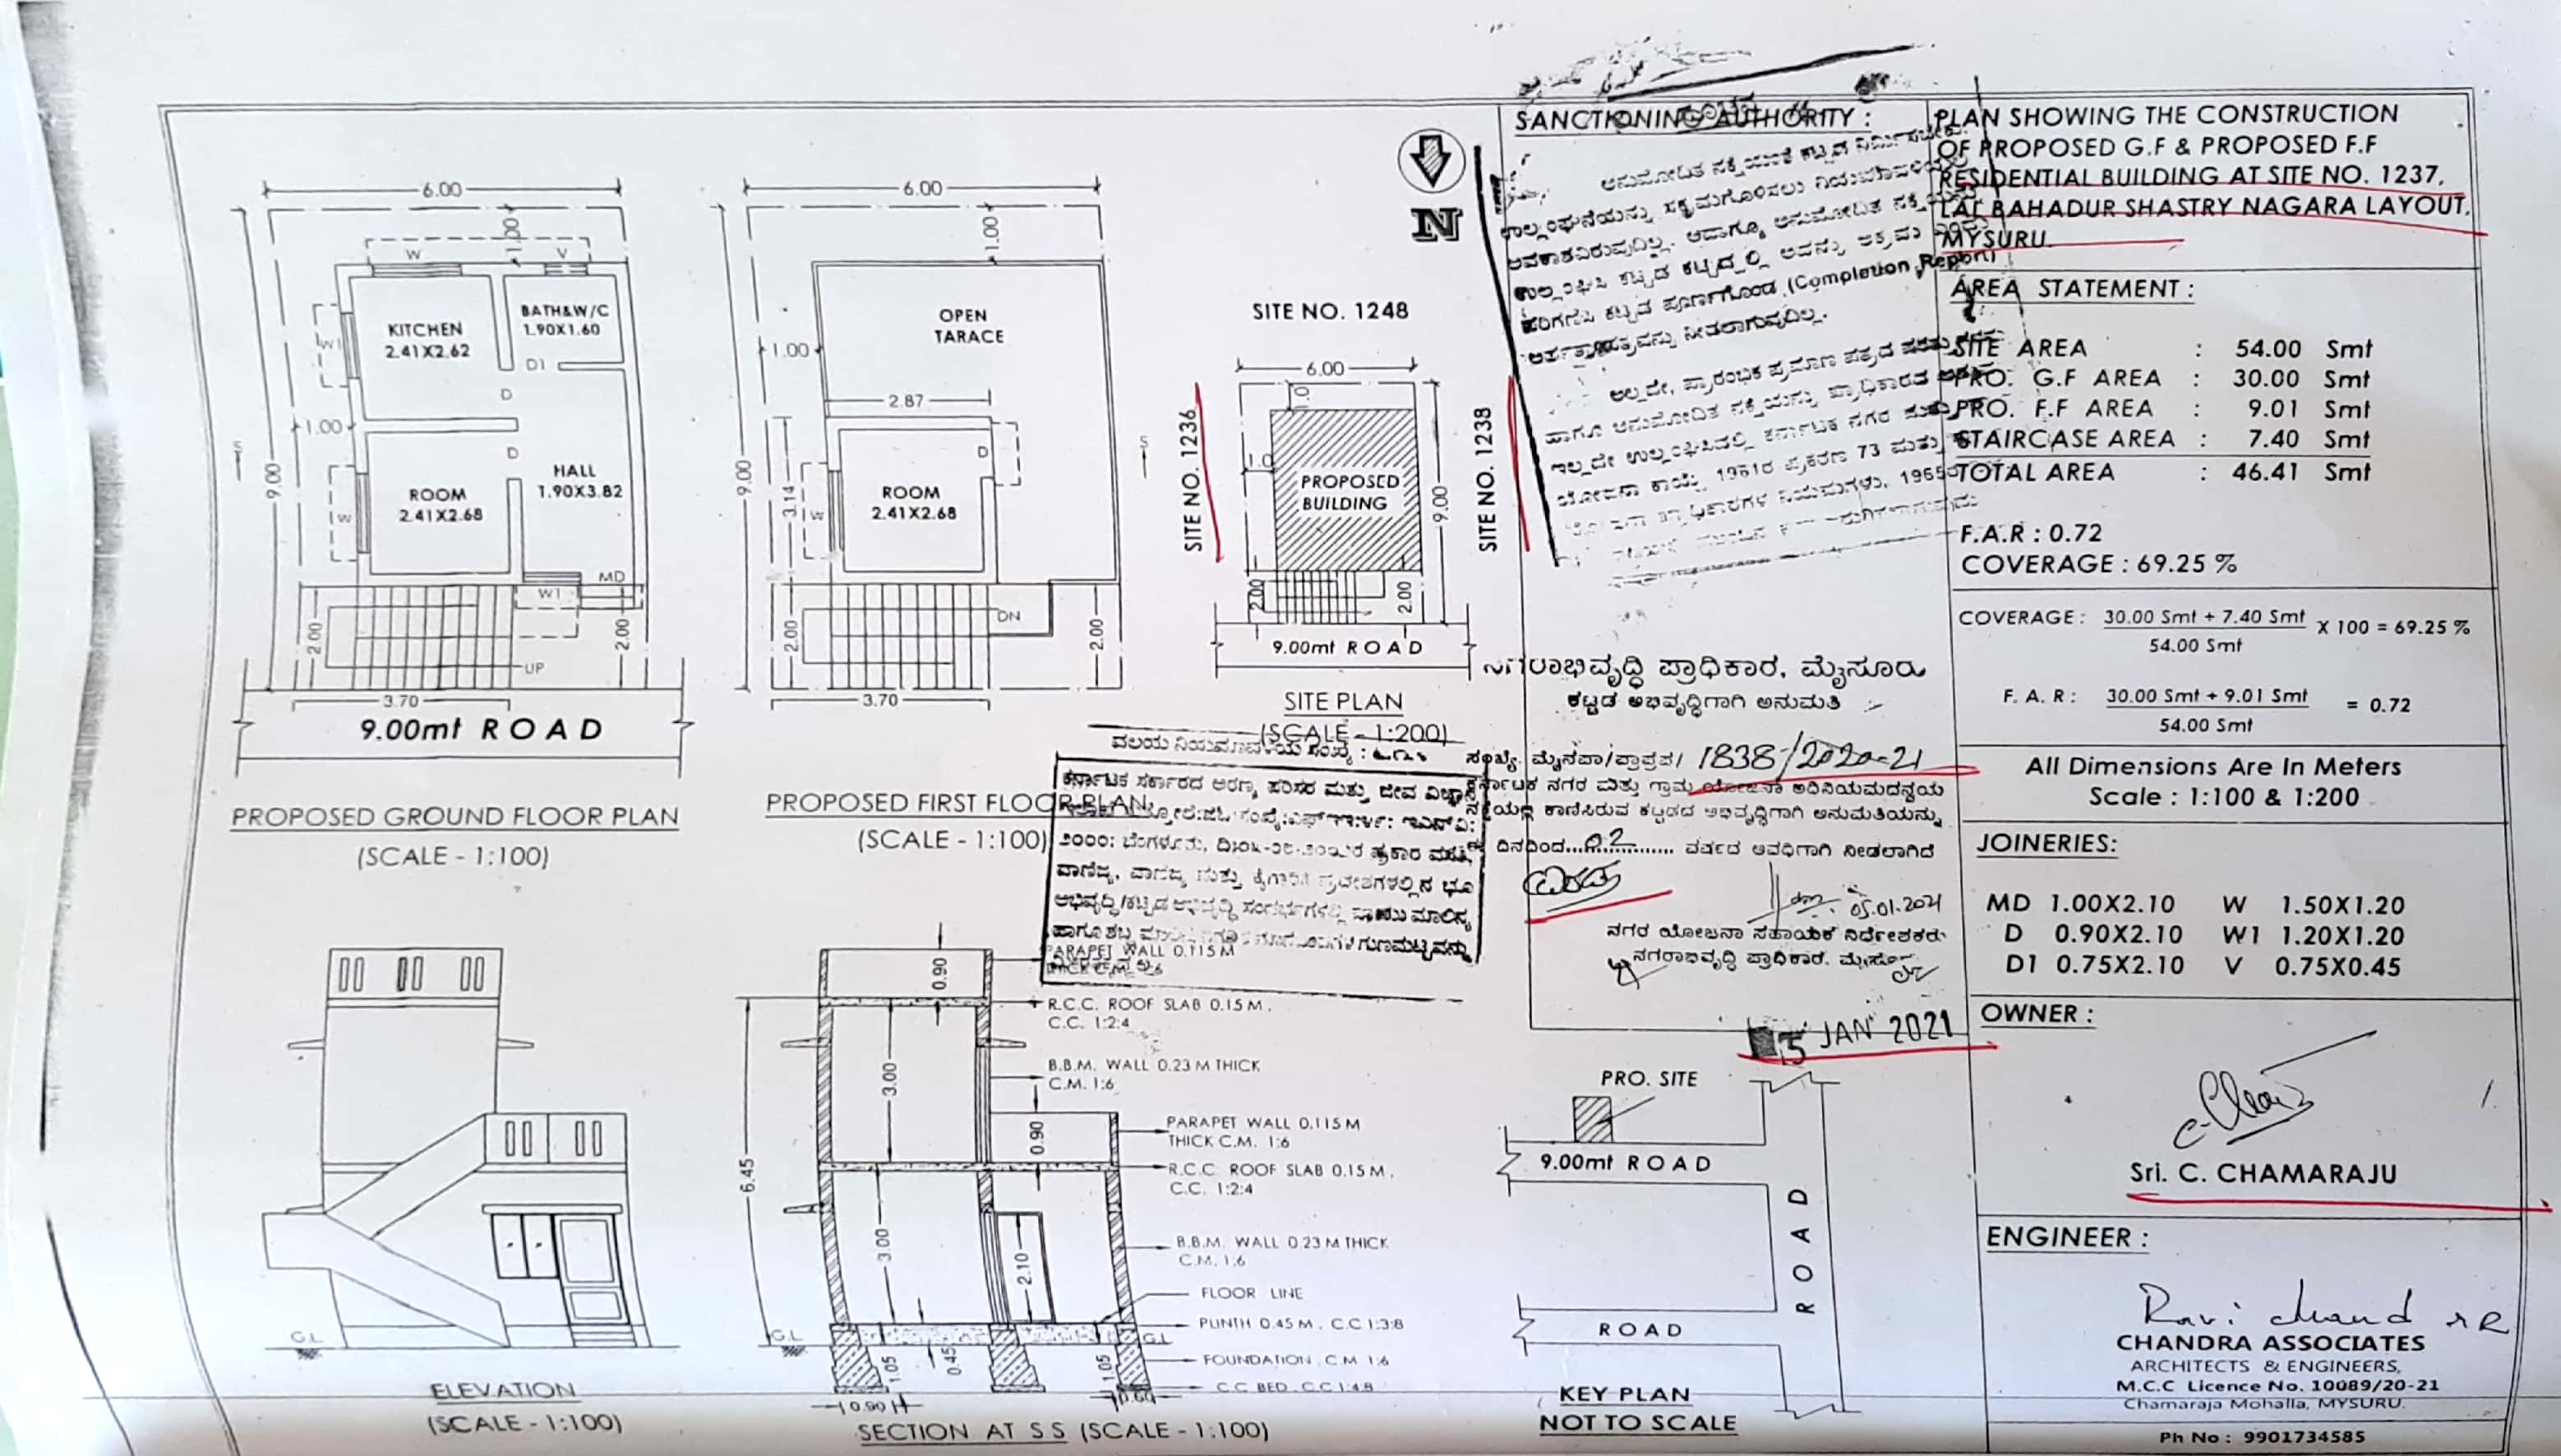 6.00
1.00
W
V
KITCHEN
2.41X2.62
BATH&W/C
1.90X1.60
W1
D1
D
1.00
9.00
S
D
HALL
1.90X3.82
ROOM
2.41X2.68
W
MD
W1
2.00
2.00
UP
3.70
9.00mt ROAD
PROPOSED GROUND FLOOR PLAN
(SCALE - 1:100)
6.00
1.00
OPEN
TARACE
1.00
2.87
9.00
3.14
S
D
ROOM
2.41X2.68
W
DN
2.00
2.00
3.70
PROPOSED FIRST FLOOR PLAN
(SCALE - 1:100)
N
SITE NO. 1248
6.00
1.0
SITE NO. 1236
SITE NO. 1238
1.0
PROPOSED
BUILDING
9.00
2.00
2.00
9.00mt ROAD
SITE PLAN
(SCALE - 1:200)
SANCTIONING AUTHORITY :
ಅನುಮೋದಿತ ನಕ್ಷೆಯಂತೆ ಕಟ್ಟಡ
ಉಲ್ಲಂಘನೆಯನ್ನು ಸಕ್ರಮಗೊಳಿಸಲು
ಅವಕಾಶವಿರುವುದಿಲ್ಲ. ಆದಾಗ್ಯೂ ಅನುಮೋದಿತ
ಉಲ್ಲಂಘಿಸಿ ಕಟ್ಟಡ ಕಟ್ಟಿದ್ದಲ್ಲಿ ಅದನ್ನು ಅಕ್ರಮ ಎಂದು
ಪರಿಗಣಿಸಿ ಕಟ್ಟಡ ಪೂರ್ಣಗೊಂಡ (Completion Report)
ನೀಡಲಾಗುವುದಿಲ್ಲ.
ಅಲ್ಲದೇ, ಪ್ರಾರಂಭಿಕ ಪ್ರಮಾಣ ಪತ್ರದ
ಹಾಗೂ ಅನುಮೋದಿತ ನಕ್ಷೆಯನ್ನು ಪ್ರಾಧಿಕಾರದ
ಇಲ್ಲದೇ ಉಲ್ಲಂಘಿಸಿದಲ್ಲಿ ಕರ್ನಾಟಕ ನಗರ ಮತ್ತು
ಯೋಜನಾ ಕಾಯ್ದೆ, 1961ರ ಪ್ರಕರಣ 73 ಮತ್ತು
ನಿಯಮಗಳು, 1965ರ
ನಗರಾಭಿವೃದ್ಧಿ ಪ್ರಾಧಿಕಾರ, ಮೈಸೂರು
ಕಟ್ಟಡ ಅಭಿವೃದ್ಧಿಗಾಗಿ ಅನುಮತಿ
ಸಂಖ್ಯೆ: ಮೈನಪ್ರಾ/ 1838/2020-21
ಕರ್ನಾಟಕ ನಗರ ಮತ್ತು ಗ್ರಾಮ ಯೋಜನಾ ಅಧಿನಿಯಮದನ್ವಯ
ನಕ್ಷೆಯಲ್ಲಿ ಕಾಣಿಸಿರುವ ಕಟ್ಟಡದ ಅಭಿವೃದ್ಧಿಗಾಗಿ ಅನುಮತಿಯನ್ನು
ಈ ದಿನದಿಂದ....02.... ವರ್ಷದ ಅವಧಿಗಾಗಿ ನೀಡಲಾಗಿದೆ
05.01.2021
ನಗರ ಯೋಜನಾ ಸಹಾಯಕ ನಿರ್ದೇಶಕರು
ನಗರಾಭಿವೃದ್ಧಿ ಪ್ರಾಧಿಕಾರ, ಮೈಸೂರು
5 JAN 2021
ವಲಯ ನಿಯಮಾವಳಿಯ ಸಂಖ್ಯೆ :
ಕರ್ನಾಟಕ ಸರ್ಕಾರದ ಅರಣ್ಯ ಪರಿಸರ ಮತ್ತು ಜೀವ ವಿಜ್ಞಾನ
೨೦೦೦: ಬೆಂಗಳೂರು, ಪ್ರಕಾರ
ವಾಣಿಜ್ಯ, ಮತ್ತು ಕೈಗಾರಿಕಾ ಪ್ರದೇಶಗಳಲ್ಲಿನ ಭೂ
ಅಭಿವೃದ್ಧಿ/ಕಟ್ಟಡ ಅಭಿವೃದ್ಧಿ ಸಂದರ್ಭಗಳಲ್ಲಿ ವಾಯು ಮಾಲಿನ್ಯ
ಹಾಗೂ ಶಬ್ದ ಗುಣಮಟ್ಟವನ್ನು
ELEVATION
(SCALE - 1:100)
G.L
0.90
PARAPET WALL 0.115 M
THICK C.M. 1:6
R.C.C. ROOF SLAB 0.15 M.
C.C. 1:2:4
B.B.M. WALL 0.23 M THICK
C.M. 1:6
3.00
0.90
PARAPET WALL 0.115 M
THICK C.M. 1:6
R.C.C ROOF SLAB 0.15 M.
C.C. 1:2:4
6.45
3.00
2.10
B.B.M. WALL 0.23 M THICK
C.M. 1:6
FLOOR LINE
PLINTH 0.45 M. C.C 1:3:8
G.L
G.L
1.05
0.45
1.05
FOUNDATION C.M 1:6
C.C BED. C.C 1:4:8
0.90
0.60
SECTION AT S S (SCALE - 1:100)
PRO. SITE
9.00mt ROAD
ROAD
ROAD
KEY PLAN
NOT TO SCALE
PLAN SHOWING THE CONSTRUCTION
OF PROPOSED G.F & PROPOSED F.F
RESIDENTIAL BUILDING AT SITE NO. 1237,
LAL BAHADUR SHASTRY NAGARA LAYOUT,
MYSURU.
AREA STATEMENT :
SITE AREA : 54.00 Smt
PRO. G.F AREA : 30.00 Smt
PRO. F.F AREA : 9.01 Smt
STAIRCASE AREA : 7.40 Smt
TOTAL AREA : 46.41 Smt
F.A.R : 0.72
COVERAGE : 69.25 %
COVERAGE : 30.00 Smt + 7.40 Smt X 100 = 69.25 %
54.00 Smt
F. A. R : 30.00 Smt + 9.01 Smt = 0.72
54.00 Smt
All Dimensions Are In Meters
Scale : 1:100 & 1:200
JOINERIES:
MD 1.00X2.10 W 1.50X1.20
D 0.90X2.10 W1 1.20X1.20
D1 0.75X2.10 V 0.75X0.45
OWNER :
Sri. C. CHAMARAJU
ENGINEER :
Ravi chand
CHANDRA ASSOCIATES
ARCHITECTS & ENGINEERS,
M.C.C Licence No. 10089/20-21
Chamaraja Mohalla, MYSURU.
Ph No : 9901734585